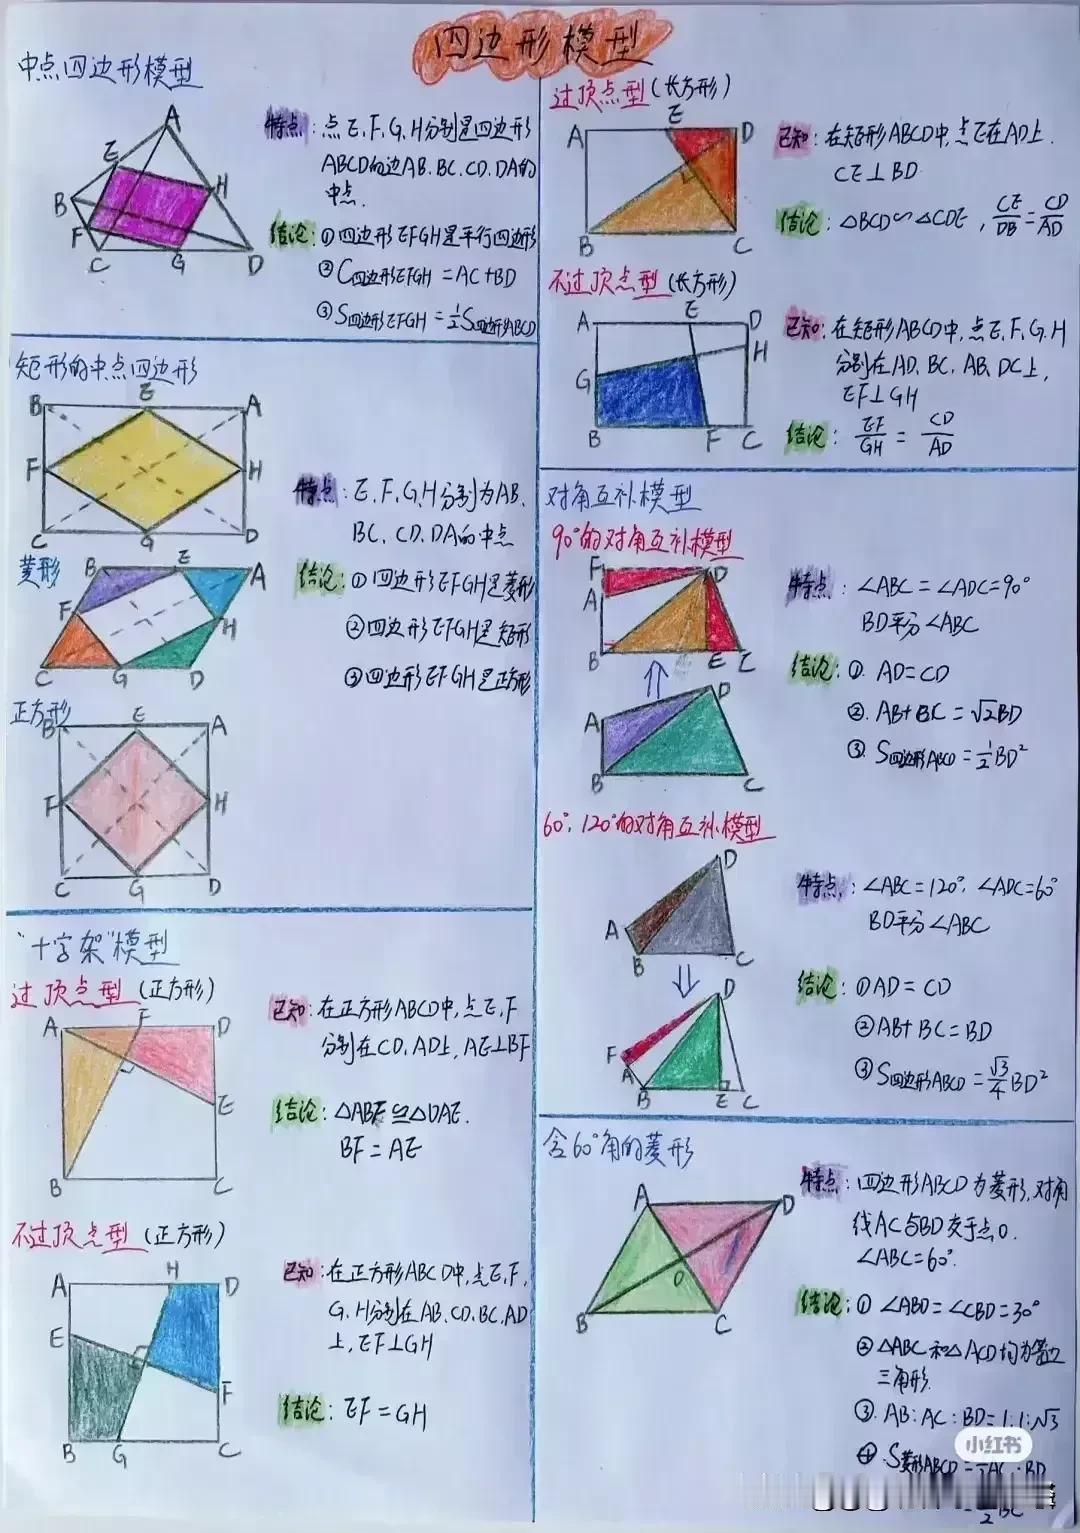 四边形模型
中点四边形模型
A
E
H
B
F
C
G
D
特点：点E、F、G、H分别是四边形
ABCD的边AB、BC、CD、DA的
中点.
结论：①四边形EFGH是平行四边形
②C四边形EFGH = AC+BD
③S四边形EFGH = 1/2 S四边形ABCD
矩形的中点四边形
B
E
A
F
H
C
G
D
菱形
B
E
A
F
H
C
G
D
正方形
B
E
A
F
H
C
G
D
特点：E、F、G、H分别为AB、
BC、CD、DA的中点
结论：①四边形EFGH是菱形
②四边形EFGH是矩形
③四边形EFGH是正方形
"十字架"模型
过顶点型(正方形)
A
F
D
E
B
C
已知：在正方形ABCD中，点E、F
分别在CD、AD上，AE⊥BF
结论：△ABF≌△DAE.
BF=AE
不过顶点型(正方形)
A
H
D
E
F
B
G
C
已知：在正方形ABCD中，点E、F、
G、H分别在AB、CD、BC、AD
上，EF⊥GH
结论：EF=GH
过顶点型(长方形)
A
E
D
B
C
已知：在矩形ABCD中，点E在AD上.
CE⊥BD
结论：△BCD∽△CDE，CE/DB=CD/AD
不过顶点型(长方形)
A
E
D
H
G
B
F
C
已知：在矩形ABCD中，点E、F、G、H
分别在AD、BC、AB、DC上，
EF⊥GH
结论：EF/GH = CD/AD
对角互补模型
90°的对角互补模型
F
D
A
B
E
C
D
A
B
C
特点：∠ABC=∠ADC=90°
BD平分∠ABC
结论：①. AD=CD
②. AB+BC=√2BD
③. S四边形ABCD=1/2BD²
60°、120°的对角互补模型
D
A
B
C
D
F
A
B
E
C
特点：∠ABC=120°、∠ADC=60°
BD平分∠ABC
结论：①AD=CD
②AB+BC=BD
③S四边形ABCD=√3/4BD²
含60°角的菱形
A
D
O
B
C
特点：四边形ABCD为菱形，对角
线AC与BD交于点O.
∠ABC=60°.
结论：①∠ABD=∠CBD=30°
②△ABC和△ACD均为等边
三角形.
③. AB:AC:BD=1:1:√3
④. S菱形ABCD=1/2AC·BD
小红书